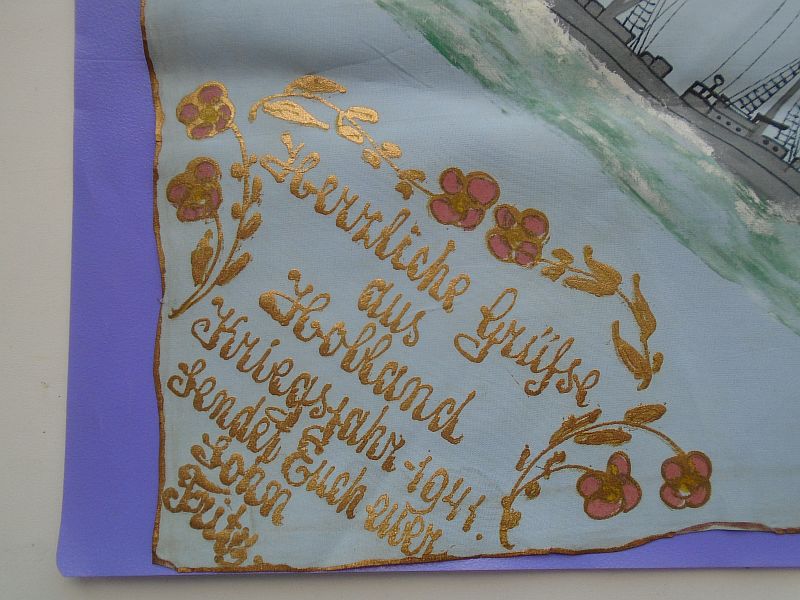 Herzliche Grüße
aus
Holland
Kriegsjahr-1941.
Sendet Euch euer
Sohn
Fritz.